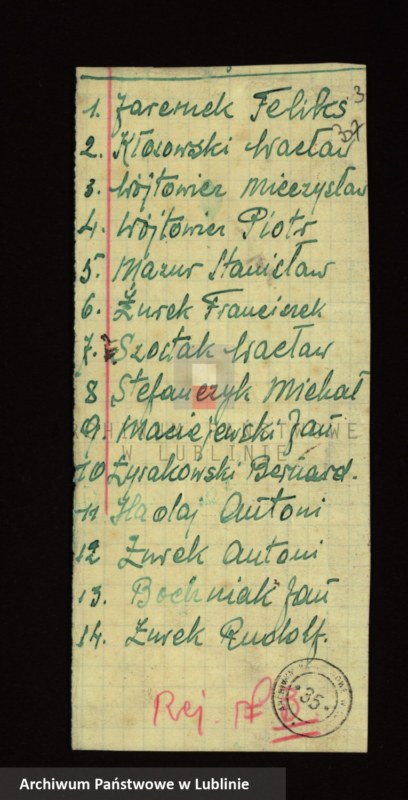 3
37
1. Jaremek Feliks
2. Kłosowski Wacław
3. Wójtowicz Mieczysław
4. Wójtowicz Piotr
5. Mazur Stanisław
6. Żurek Franciszek
7. Szostak Wacław
8 Stefańczyk Michał
9. Maciejewski Jan
10 Żyrakowski Bernard.
11 Hadaj Antoni
12 Żurek Antoni
13. Bochniak Jan
14. Żurek Rudolf.
35
Rej. № 3
W LUBLINIE
Archiwum Państwowe w Lublinie